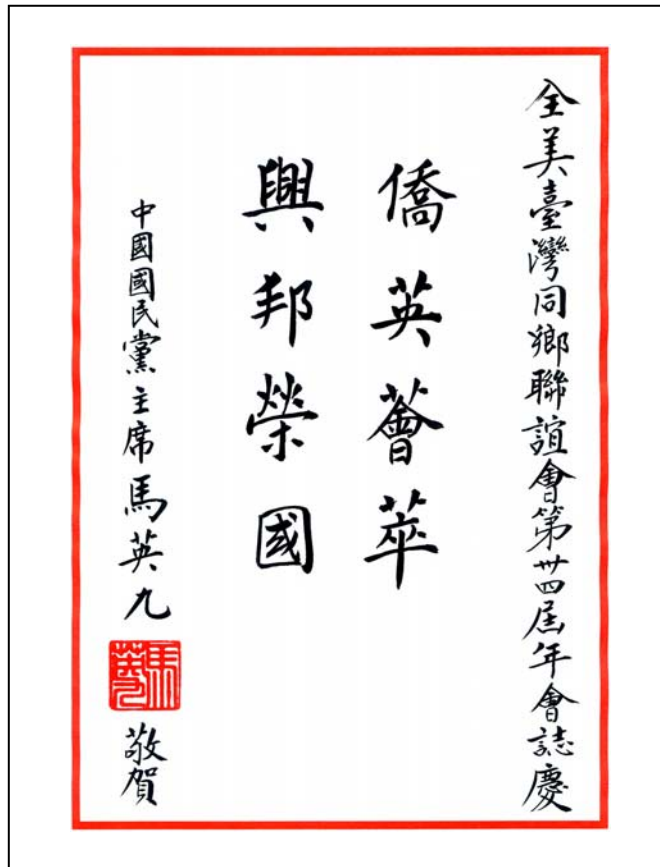 全美臺灣同鄉聯誼會第卅四屆年會誌慶
僑英薈萃
興邦榮國
中國國民黨主席馬英九
馬英九
敬賀